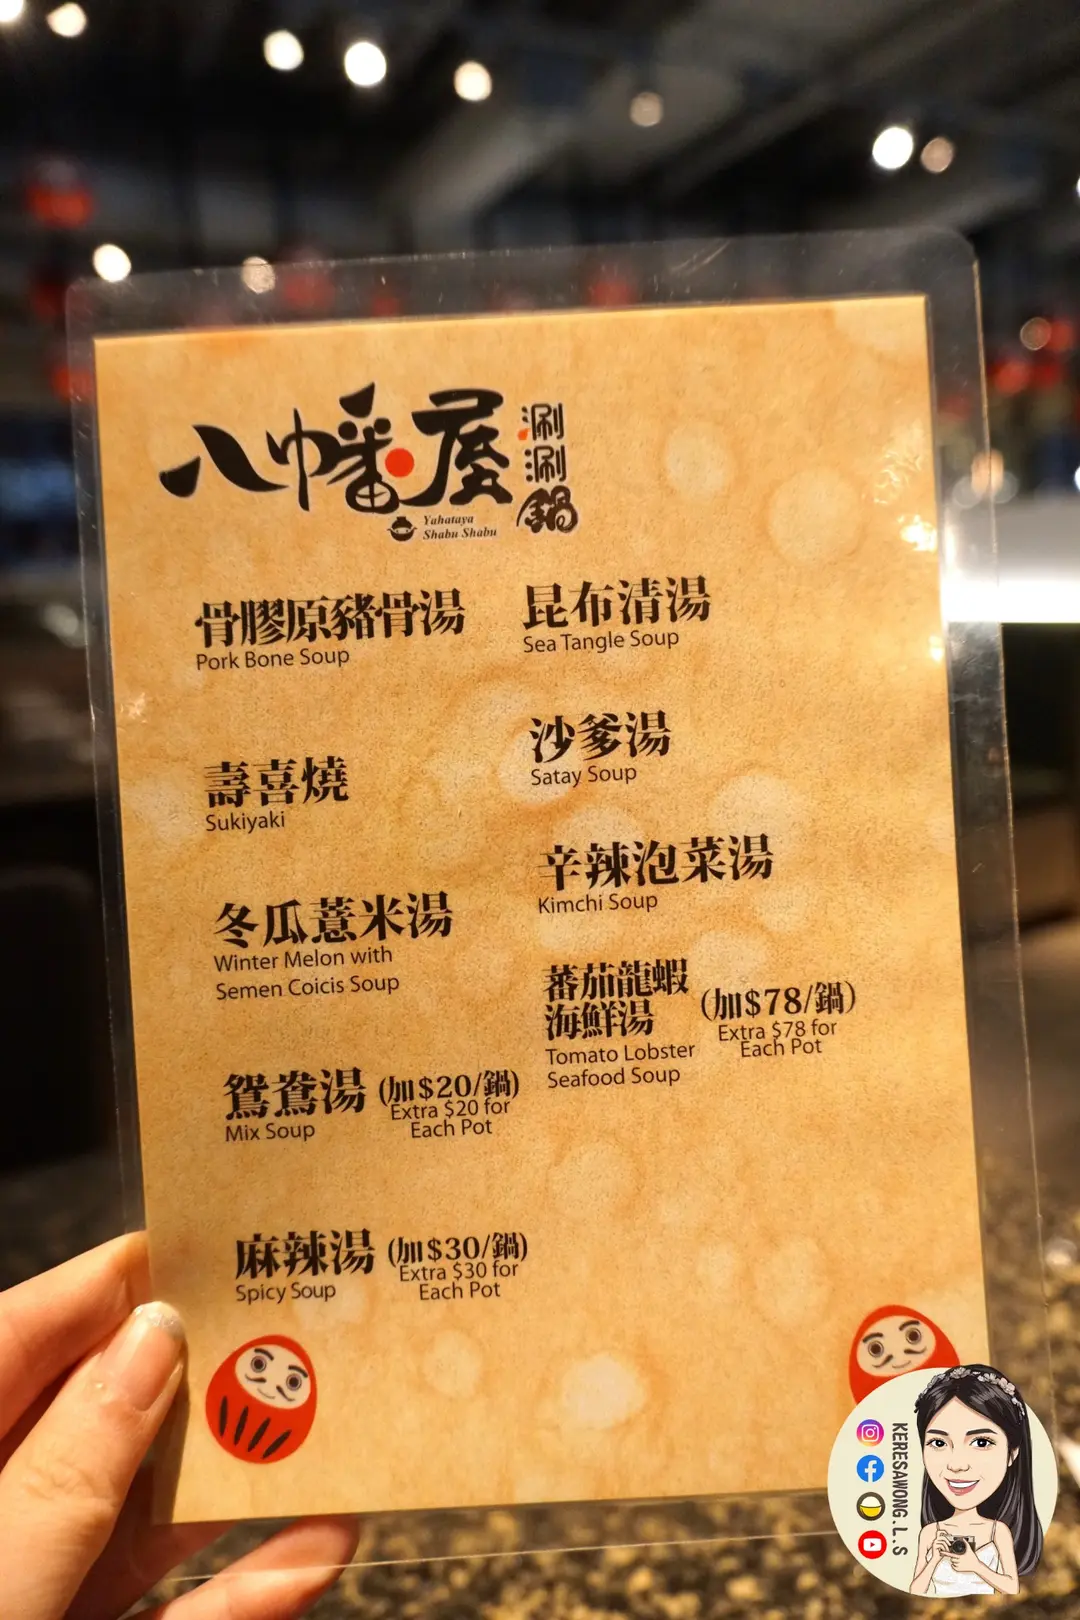 八幡屋
涮涮鍋
Yahataya
Shabu Shabu
骨膠原豬骨湯
Pork Bone Soup
壽喜燒
Sukiyaki
冬瓜薏米湯
Winter Melon with
Semen Coicis Soup
鴛鴦湯 (加$20/鍋)
Mix Soup
Extra $20 for
Each Pot
麻辣湯 (加$30/鍋)
Spicy Soup
Extra $30 for
Each Pot
昆布清湯
Sea Tangle Soup
沙爹湯
Satay Soup
辛辣泡菜湯
Kimchi Soup
蕃茄龍蝦
海鮮湯
(加$78/鍋)
Extra $78 for
Each Pot
Tomato Lobster
Seafood Soup
KERESAWONG.L.S